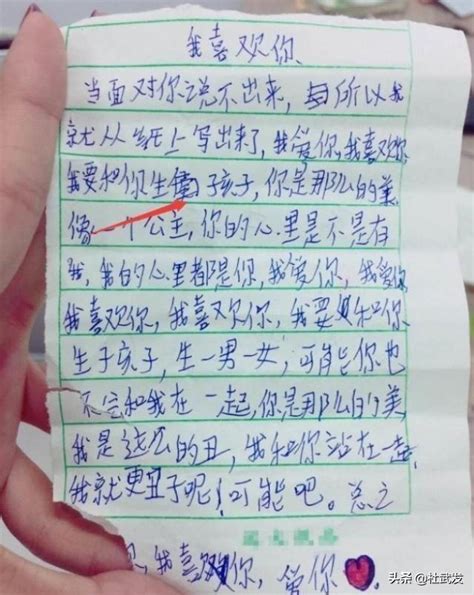 我喜欢你
当面对你说不出来，所以我
就从纸上写出来了，我爱你，我喜欢你
我要和你生子孩子，你是那么的美
像一个公主，你的心里是不是有
我，我的心里都是你，我爱你，我爱你
我喜欢你，我喜欢你，我要和你
生子孩子，生一男一女，可能你也
不宁和我在一起，你是那么的美
我是这么的丑，我和你站在一起
我就更丑了呢！可能吧。总之
我喜欢你，爱你
头条 @杜武发